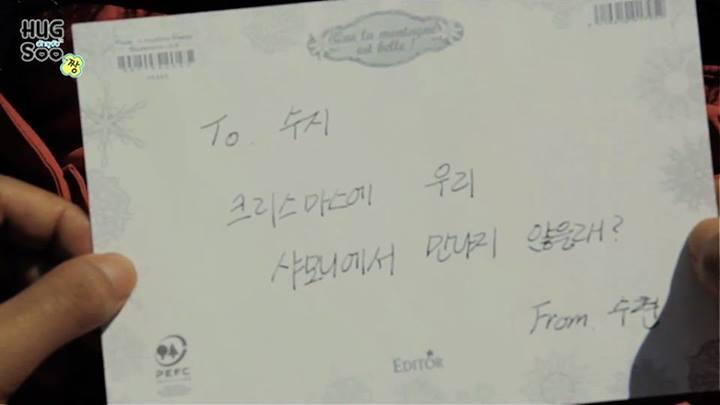 HUG
SOO
짱
Que la montagne
est belle !
To. 수지
크리스마스에 우리
샤모니에서 만나지 않을래?
From. 수현
PEFC
EDITOR